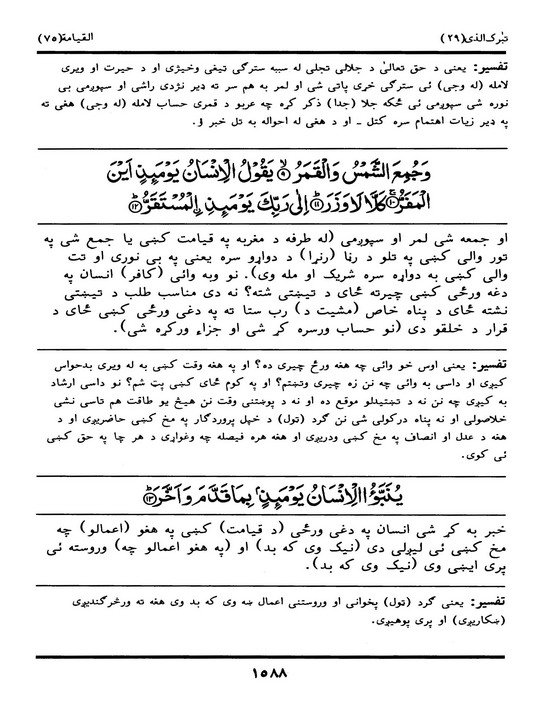 تبٰرک الذی (۲۹) القیامة (۷۵)
تفسیر: یعنی د حق تعالیٰ د جلالی تجلی له سببه سترګی تیغی وخیژی او د حیرت او ویری
لامله (له وجی) ئی سترګی خړی پاتی شی او لمر به هم سر ته ډیر نژدی راشی او سپوږمی بی
نوره شی سپوږمی ئی ځکه جلا (جدا) ذکر کړه چه عربو د قمری حساب لامله (له وجی) هغی ته
په ډیر زیات اهتمام سره کتل ـ او د هغی له احواله به تل خبر ؤ.
وَجُمِعَ الشَّمْسُ وَالْقَمَرُ ۙ۹ يَقُولُ الْإِنْسَانُ يَوْمَئِذٍ أَيْنَ
الْمَفَرُّ ۚ۱۰ كَلَّا لَا وَزَرَ ۱۱ إِلَىٰ رَبِّكَ يَوْمَئِذٍ الْمُسْتَقَرُّ ۱۲
او جمعه شی لمر او سپوږمی (له طرفه د مغربه په قیامت کښی یا جمع شی په
تور والی کښی په تلو د رڼا (رنړا) د دواړو سره یعنی په بی نوری او تت
والی کښی به دواړه سره شریک او مله وی). نو وبه وائی (کافر) انسان په
دغه ورځی کښی چیرته ځای د تیښتی شته؟ نه دی مناسب طلب د تیښتی
نشته ځای د پناه خاص (مشیت د) رب ستا ته په دغی ورځی کښی ځای د
قرار د خلقو دی (نو حساب ورسره کړ شی او جزاء ورکړه شی).
تفسیر: یعنی اوس خو وائی چه هغه ورځ چیری ده؟ او په هغه وقت کښی به له ویری بدحواس
کیږی او داسی به وائی چه نن زه چیری وتښتم؟ او په کوم ځای کښی پت شم؟ نو داسی ارشاد
به کیږی چه نن نه د تښتیدلو موقع ده او نه د پوښتنی وقت نن هیڅ یو طاقت هم تاسی نشی
خلاصولی او نه پناه درکولی شی نن ګرد (تول) د خپل پروردګار په مخ کښی حاضریږی او د
هغه د عدل او انصاف په مخ کښی ودریږی او هغه هره فیصله چه وغواړی د هر چا په حق کښی
ئی کوی.
يُنَبَّؤُا الْإِنْسَانُ يَوْمَئِذٍ بِمَا قَدَّمَ وَأَخَّرَ ۱۳
خبر به کړ شی انسان په دغی ورځی (د قیامت) کښی په هغو (اعمالو) چه
مخ کښی ئی لیږلی دی (نیک وی که بد) او (په هغو اعمالو چه) وروسته ئی
پری ایښی وی (نیک وی که بد).
تفسیر: یعنی ګرد (تول) پخوانی او وروستنی اعمال ښه وی که بد وی هغه ته ورڅرګندیږی
(ښکاریږی) او پری پوهیږی.
۱۵۸۸